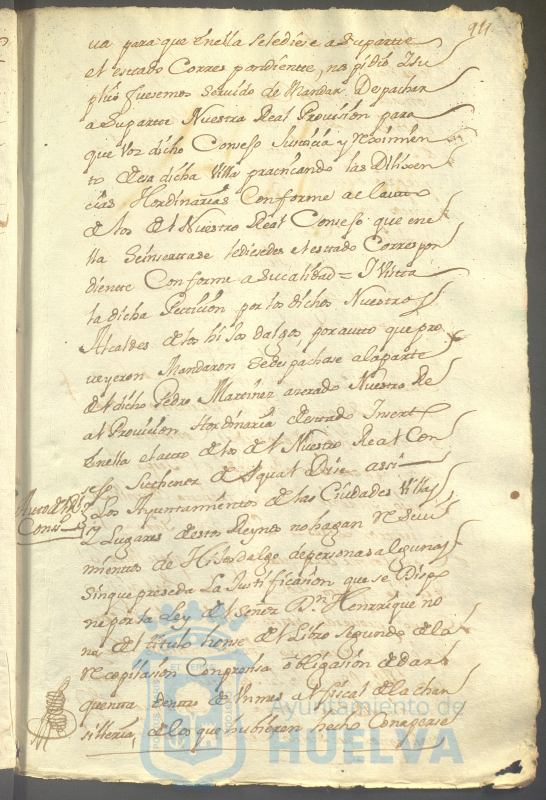 911
va para que Enella seledies e asuparte
el estado Correspondiente, nos pidio Isu
plico fuesemos servido de Mandar Despachar
a Suparte Nuestra Real Provision para
que Voz dicho Consejo Justicia y reximien
to desa dicha Villa practicando las Dilixen
cias Hordinarias Conforme a el auto
de los del Nuestro Real Consejo que en e
lla Seinsertase lediesedes el estado Correspon
diente Conforme a su calidad = I Vista
la dicha Peticion por los dichos Nuestros
Alcaldes de los hijos dalgo, por auto que pro
veyeron Mandaron Se despachase a la parte
del dicho Pedro Martinez Nuestro Re
al Provision Hordinaria de estado Insert
Enella el auto de los del Nuestro Real Con
sejo Suthenor del qual Dise assi
Auto del R.l
Consejo
Los Ayuntamientos de las Ciudades Villas
I Lugares destos Reynos no hagan reseui
mientos de Hijosdalgo de personas algunas
Sinque preseda La Justificasion que se Dispo
ne por la Ley del Señor D.n Henrrique no
na del titulo honse del Libro Segundo de la
recopilasion Conpresisa obligasion de dar
quenta dentro de Vnmes al fiscal de la chan
silleria, de los que hubieren hecho Conaperse
Ayuntamiento de
HUELVA